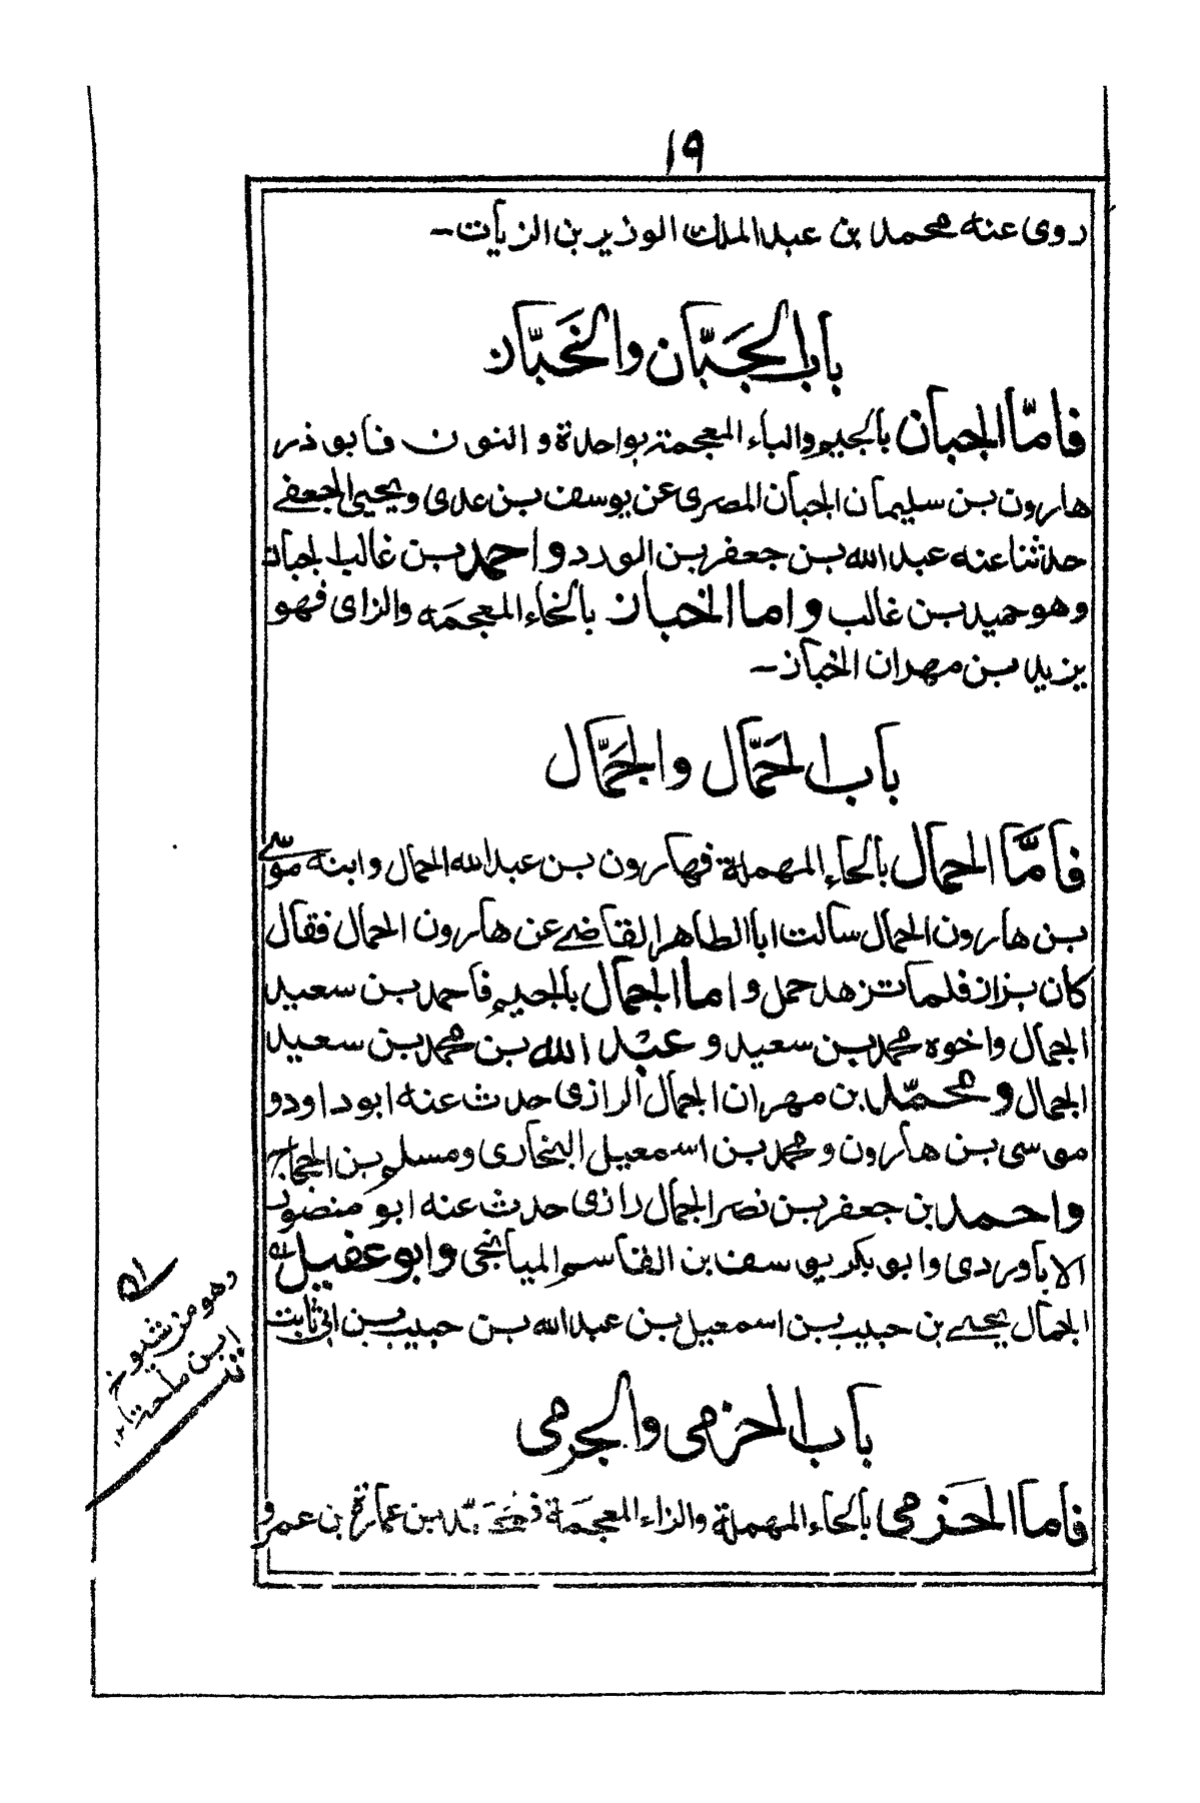 ١٩
روى عنه محمد بن عبد الملك الوزير بن الزيات -
باب الجَبَّان والخَبَّاز
فامّا الجبان بالجيم والباء المعجمة بواحدة و النون فابو ذر
هارون بن سليمان الجبان المصرى عن يوسف بن عدى ويحيى الجعفے
حدثنا عنه عبد الله بن جعفر بن الورد و احمد بن غالب الجبان
وهو حميد بن غالب و اما الخباز بالخاء المعجمَه والزاى فهو
يزيد بن مهران الخباز -
باب الحَمَّال والجَمَّال
فامَّا الحمال بالحاء المهملة فهارون بن عبد الله الحمال وابنه موسے
بن هارون الحمال سالت ابا الطاهر القاضے عن هارون الحمال فقال
كان بزاز فلما تزهد حمل و اما الجمال بالجيم فاحمد بن سعيد
الجمال واخوه محمد بن سعيد و عبد الله بن محمد بن سعيد
الجمال و محمّد بن مهران الجمال الرازى حدث عنه ابو داود و
موسى بن هارون و محمد بن اسمعيل البخارى ومسلم بن الحجاج
واحمد بن جعفر بن نصر الجمال رازى حدث عنه ابو منصور
الاباوردى وابو بكر يوسف بن القاسم الميانجى وابو عقيل
الجمال يحيے بن حبيب بن اسمعيل بن عبد الله بن حبيب بن ابى ثابت
وهو من شيوخ
ابن ملحة
باب الحزمى والجرمى
فاما الحَزمى بالحاء المهملة والزاء المعجمَة فمحمّد بن عمارة بن عمرو